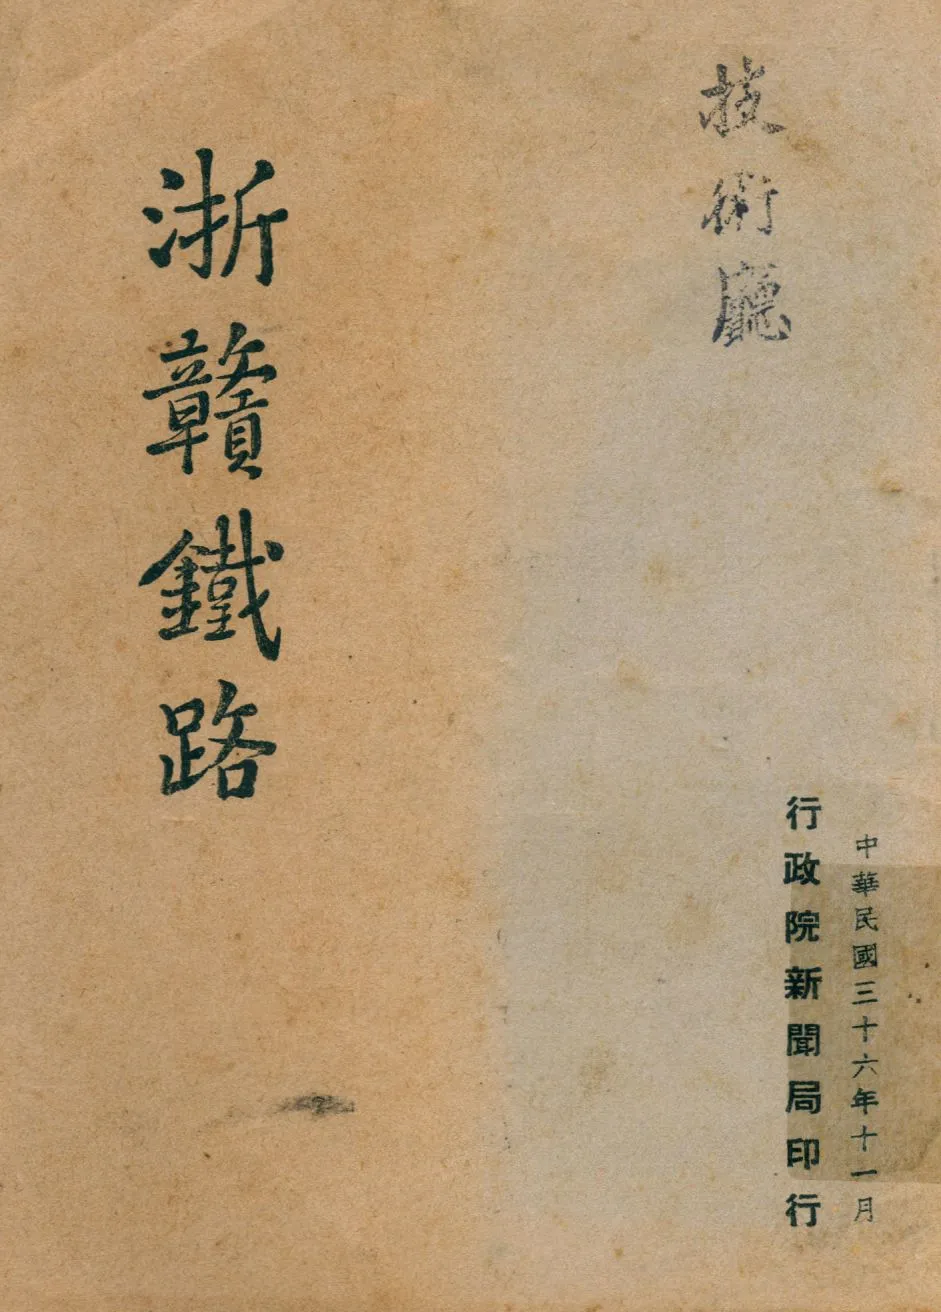 中華民國三十六年十一月
行政院新聞局印行
技術廳
浙贛鐵路